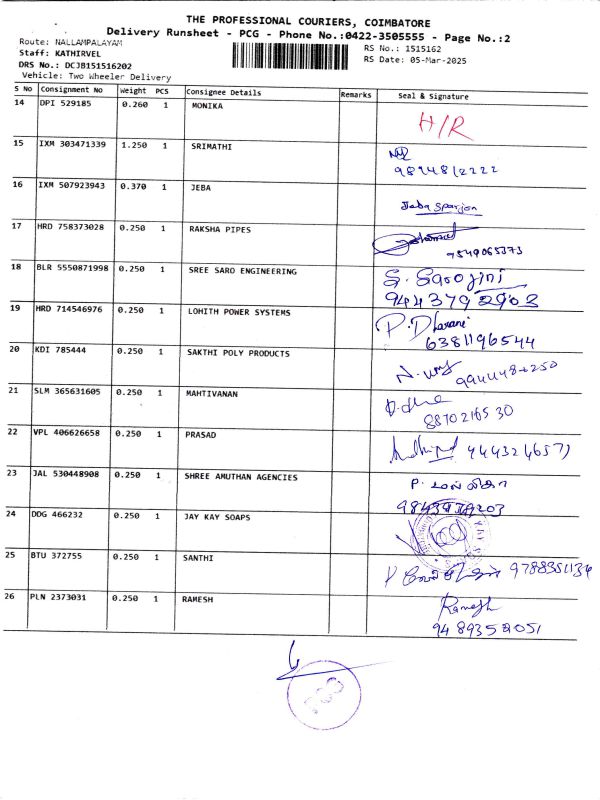 THE PROFESSIONAL COURIERS, COIMBATORE
Delivery Runsheet - PCG - Phone No.:0422-3505555 - Page No.:2
Route: NALLAMPALAYAM
RS No.: 1515162
Staff: KATHIRVEL
RS Date: 05-Mar-2025
DRS No.: DCJB151516202
Vehicle: Two Wheeler Delivery
S No Consignment No Weight PCS Consignee Details Remarks Seal & Signature
14 DPI 529185 0.260 1 MONIKA
H/R
15 IXM 303471339 1.250 1 SRIMATHI
16 IXM 507923943 0.370 1 JEBA
Jeba
17 HRD 758373028 0.250 1 RAKSHA PIPES
18 BLR 5550871998 0.250 1 SREE SARO ENGINEERING
S. Sarojini
9443792902
19 HRD 714546976 0.250 1 LOHITH POWER SYSTEMS
P. Dharani
6381196544
20 KDI 785444 0.250 1 SAKTHI POLY PRODUCTS
21 SLM 365631605 0.250 1 MAHTIVANAN
8870216530
22 VPL 406626658 0.250 1 PRASAD
23 JAL 530448908 0.250 1 SHREE AMUTHAN AGENCIES
24 DDG 466232 0.250 1 JAY KAY SOAPS
25 BTU 372755 0.250 1 SANTHI
26 PLN 2373031 0.250 1 RAMESH
Ramesh
PCG